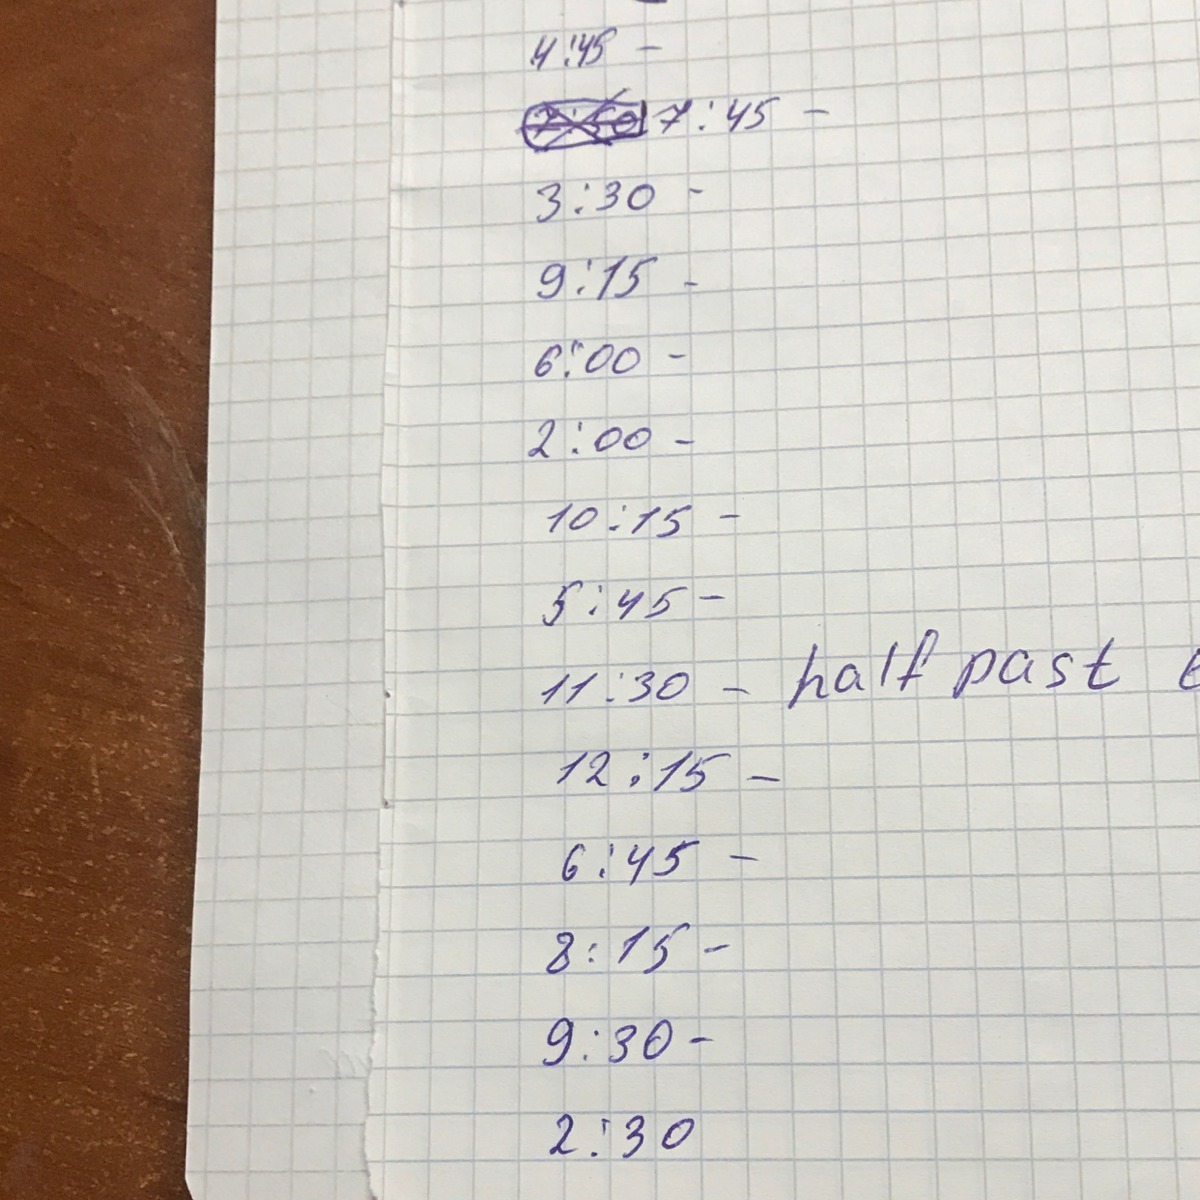 4:45 -
7:45 -
3:30 -
9:15 -
6:00 -
2:00 -
10:15 -
5:45 -
11:30 - half past
12:15 -
6:45 -
8:15 -
9:30 -
2:30